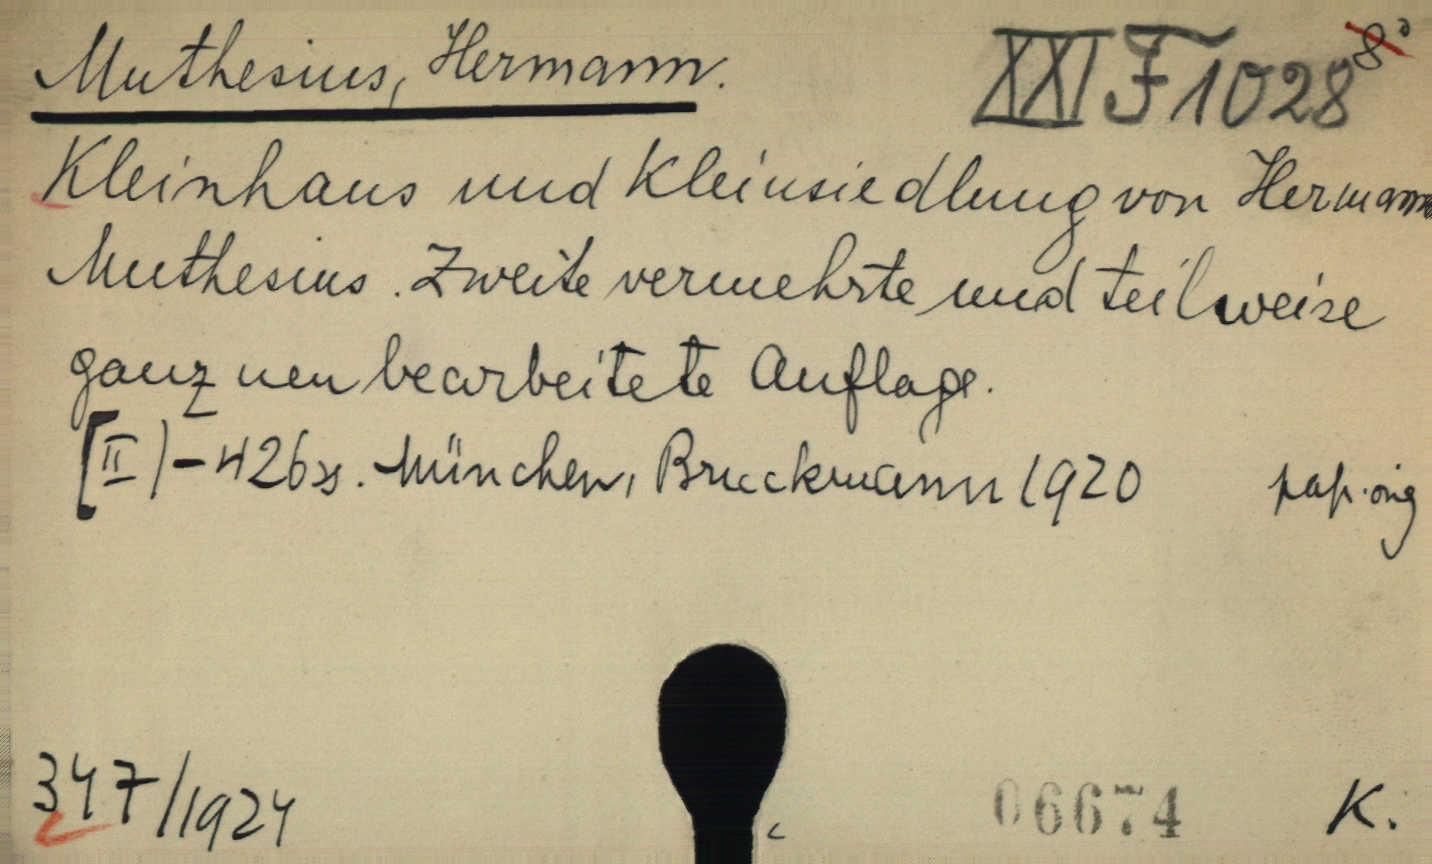 Muthesius, Hermann. XXI F 1028 8°
Kleinhaus und Kleinsiedlung von Hermann
Muthesius. Zweite vermehrte und teilweise
ganz neu bearbeitete Auflage.
[II]-426 s. München, Bruckmann 1920 pap. orig
347/1924 06674 K.